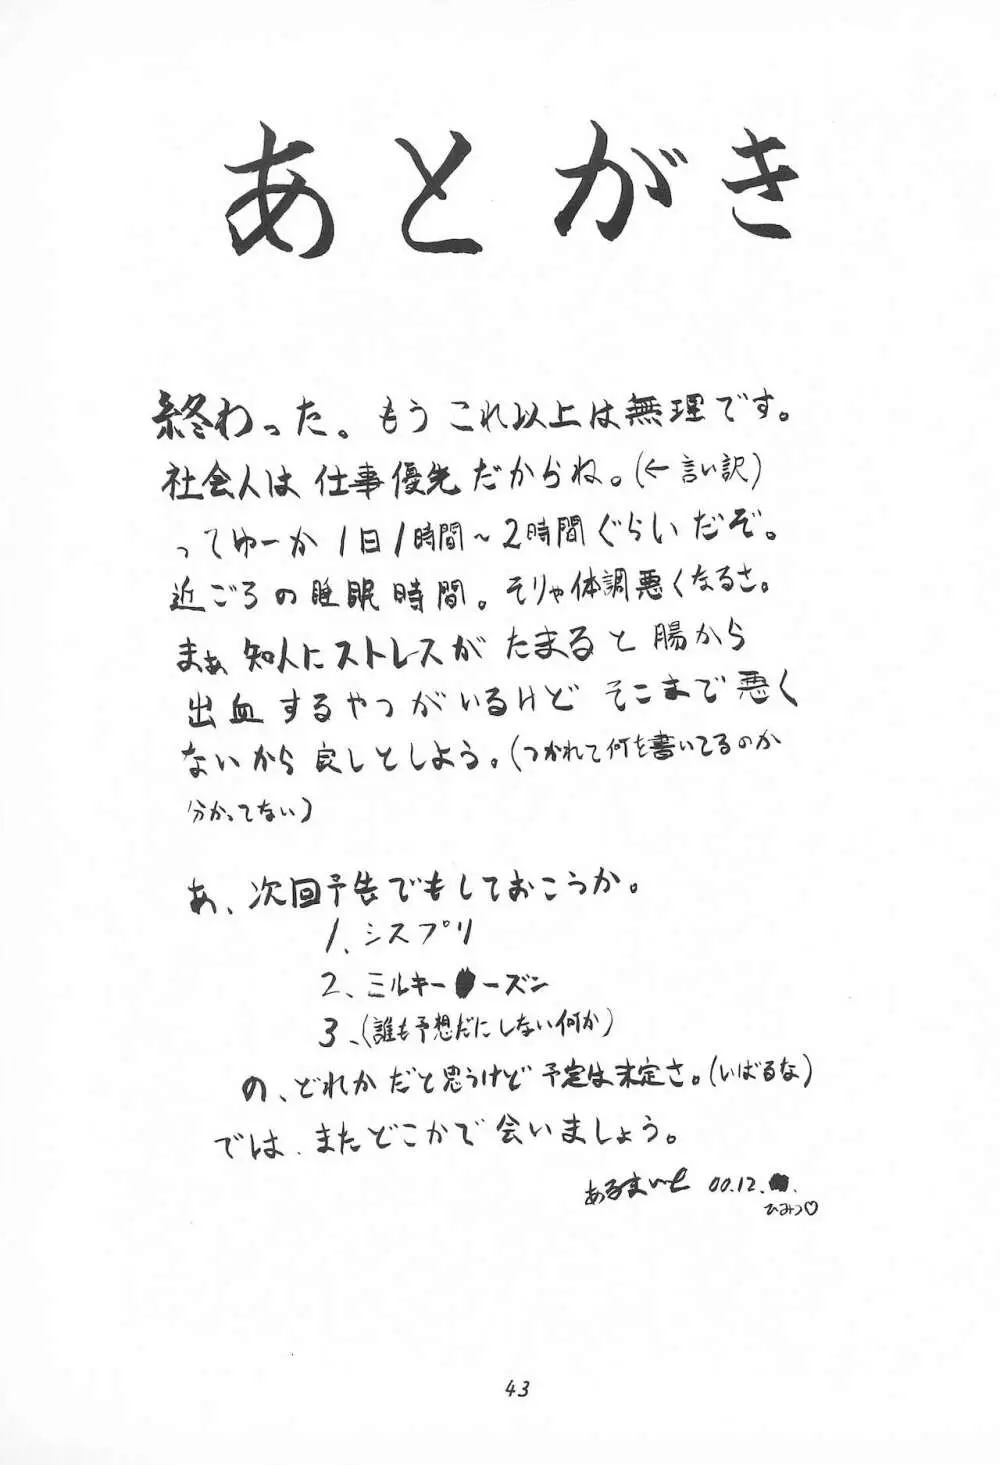 あとがき
終わった。もうこれ以上は無理です。
社会人は仕事優先だからね。(←言い訳)
ってゆーか1日1時間~2時間ぐらいだぞ。
近ごろの睡眠時間。そりゃ体調悪くなるさ。
まぁ知人にストレスがたまると腸から
出血するやつがいるけどそこまで悪く
ないから良しとしよう。(つかれて何を書いてるのか
分かってない)
あ、次回予告でもしておこうか。
1、シスプリ
2、ミルキー●ーズン
3、(誰も予想だにしない何か)
の、どれかだと思うけど予定は未定さ。(いばるな)
では、またどこかで会いましょう。
あるまいと 00.12.
ひみつ♡
43